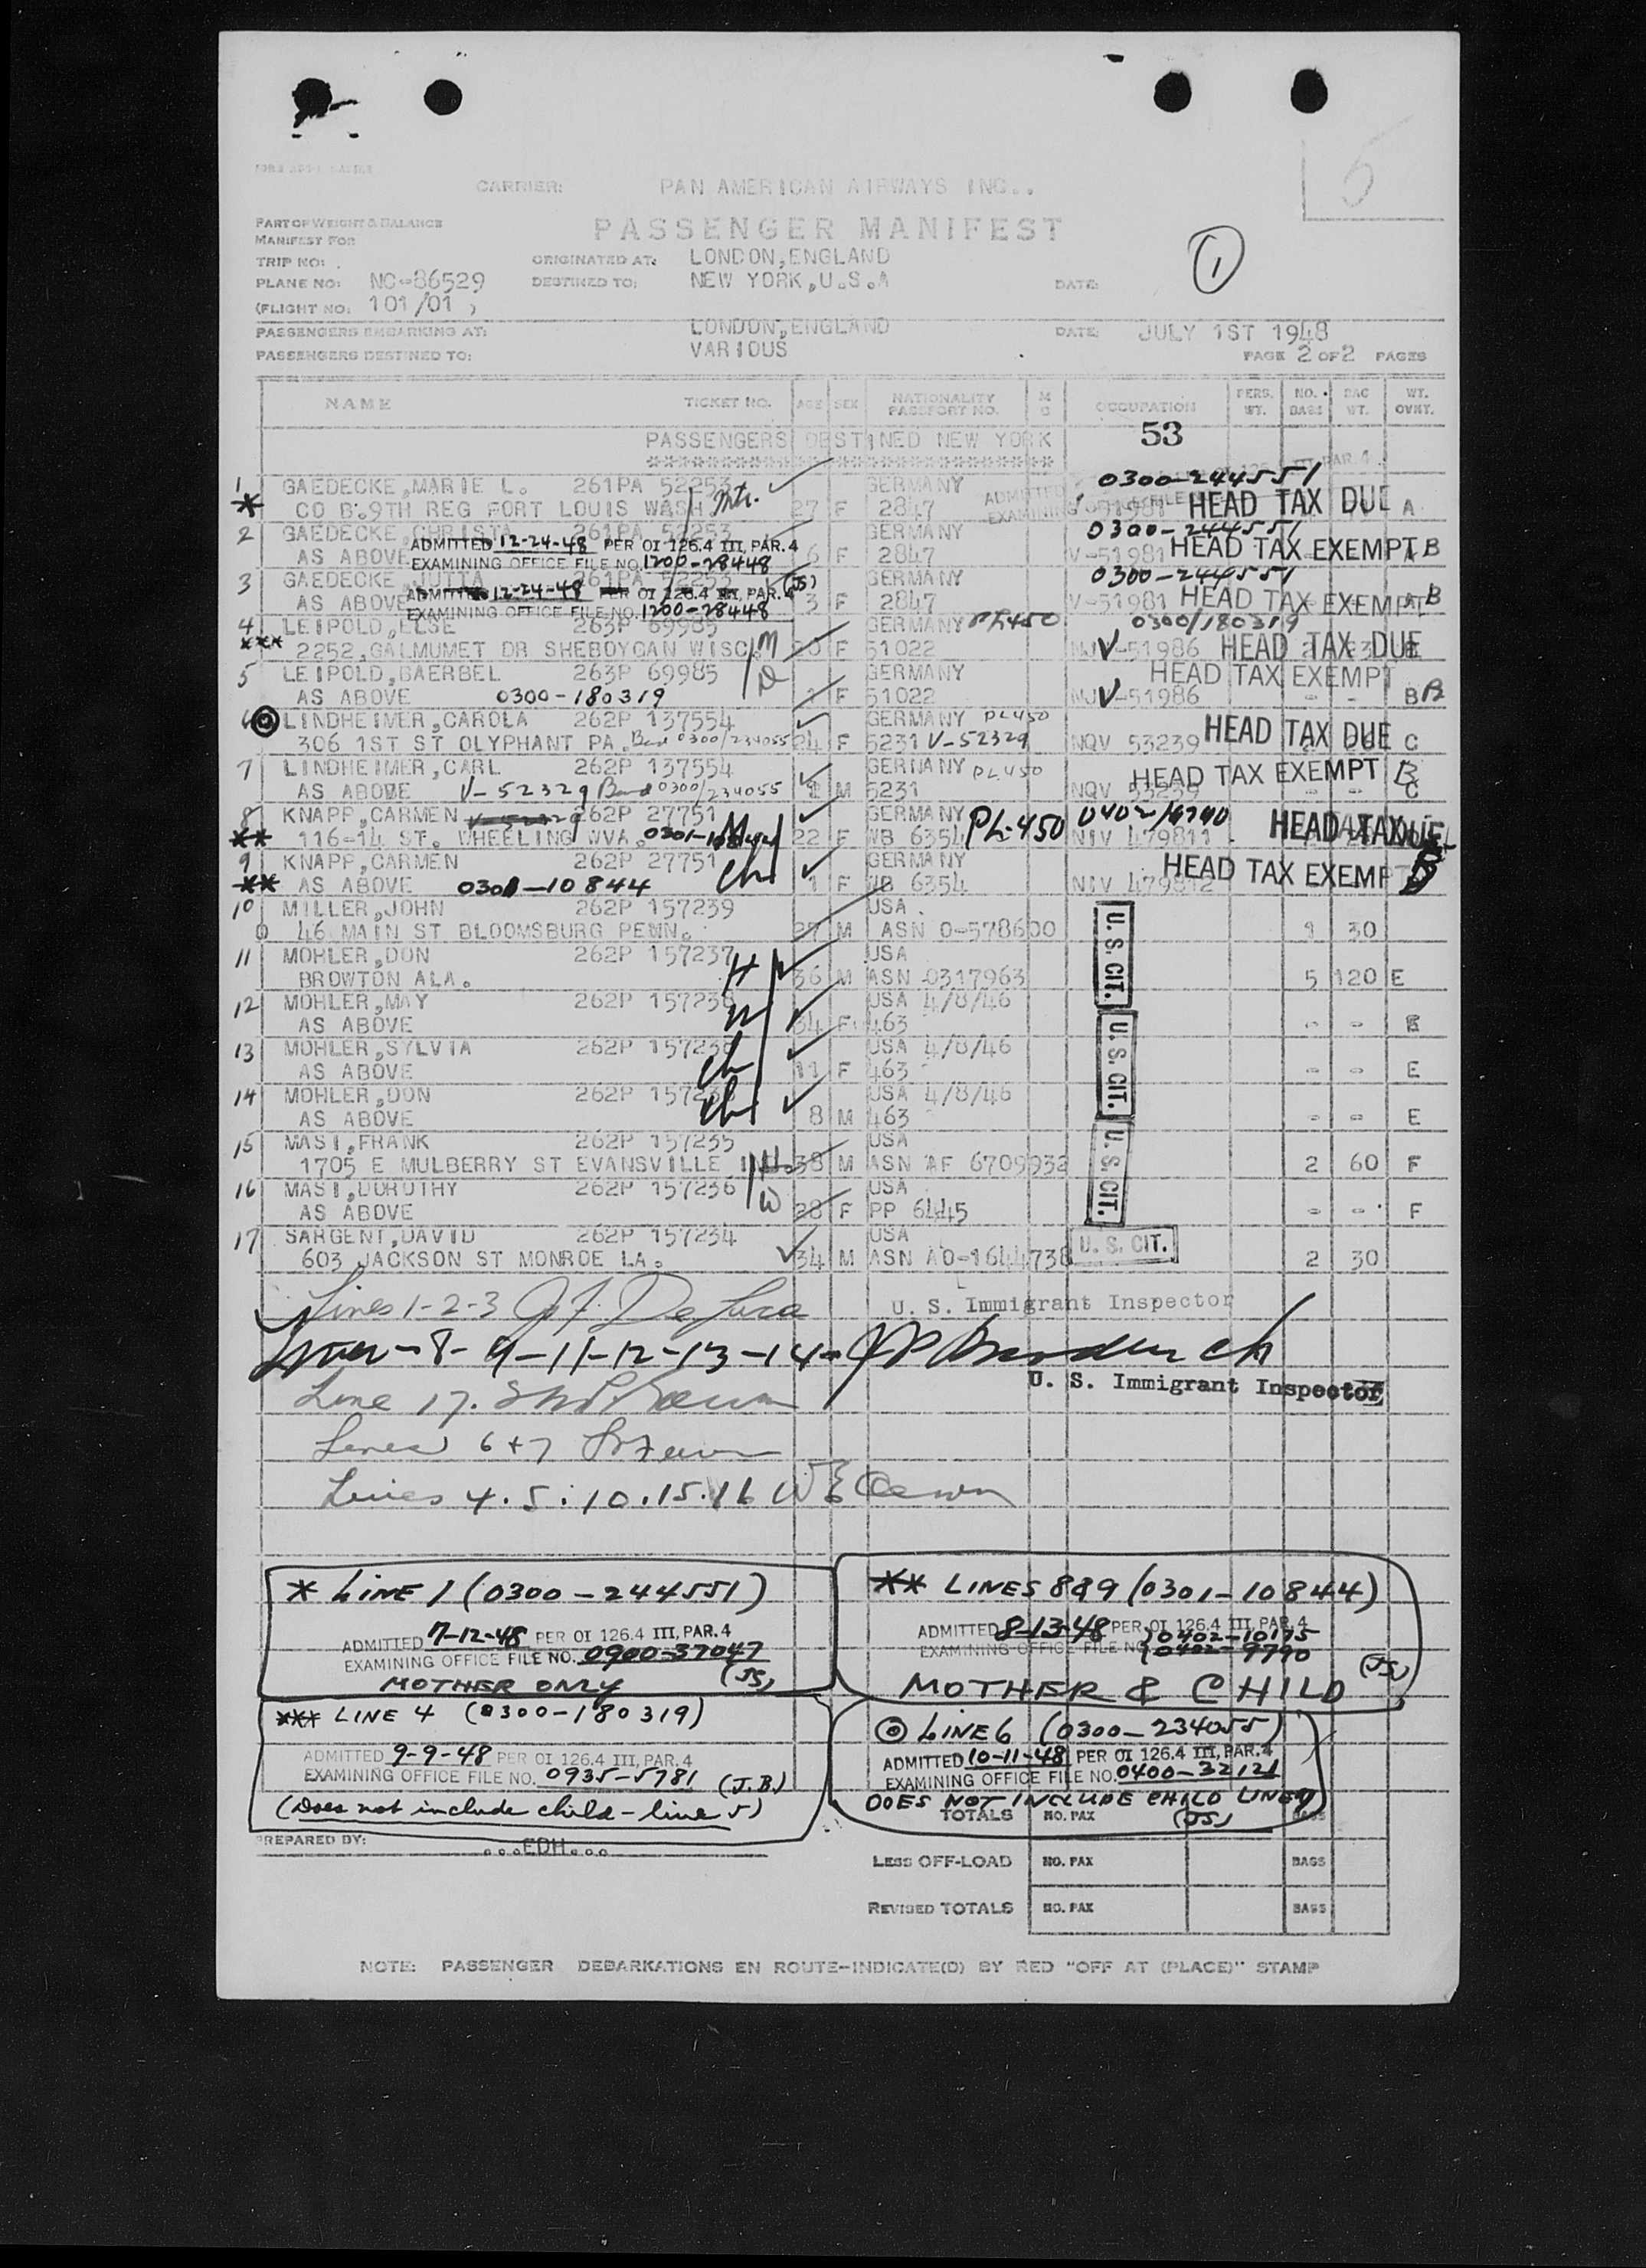 5
CARRIER: PAN AMERICAN AIRWAYS INC..
PART OF WEIGHT & BALANCE
MANIFEST FOR
PASSENGER MANIFEST
1
TRIP NO: ORIGINATED AT: LONDON,ENGLAND
PLANE NO: NC-86529 DESTINED TO: NEW YORK,U.S.A DATE:
(FLIGHT NO: 101/01 )
PASSENGERS EMBARKING AT: LONDON,ENGLAND DATE: JULY 1ST 1948
PASSENGERS DESTINED TO: VARIOUS PAGE 2 OF 2 PAGES
NAME TICKET NO. AGE SEX NATIONALITY PASSPORT NO. M C OCCUPATION PERS. WT. NO. BAGS BAG WT. WT. OVNT.
PASSENGERS DESTINED NEW YORK 53
1 GAEDECKE,MARIE L. 261PA 52253 GERMANY 0300-244551
* CO B.9TH REG FORT LOUIS WASH 27 F 2847 V-51981 HEAD TAX DUE A
2 GAEDECKE,CHRISTA 261PA 52253 GERMANY 0300-244551
ADMITTED 12-24-48 PER OI 126.4 III, PAR. 4
AS ABOVE 6 F 2847 V-51981 HEAD TAX EXEMPT B
EXAMINING OFFICE FILE NO. 1200-28448
3 GAEDECKE,JUTTA 261PA 52253 (JS) GERMANY 0300-244551
ADMITTED 12-24-48 PER OI 126.4 III, PAR. 4
AS ABOVE 3 F 2847 V-51981 HEAD TAX EXEMPT B
EXAMINING OFFICE FILE NO. 1200-28448
4 LEIPOLD,ELSE 263P 69985 GERMANY PL450 0300/180319
*** 2252,GALMUMET DR SHEBOYGAN WISC. M 20 F 51022 V-51986 HEAD TAX DUE
5 LEIPOLD,BAERBEL 263P 69985 D GERMANY HEAD TAX EXEMPT
AS ABOVE 0300-180319 1 F 51022 V-51986 - - B B
6 LINDHEIMER,CAROLA 262P 137554 GERMANY PL450
306 1ST ST OLYPHANT PA. 0300/234055 24 F 5231 V-52329 NQV 53239 HEAD TAX DUE C
7 LINDHEIMER,CARL 262P 137554 GERMANY PL450 HEAD TAX EXEMPT B
AS ABOVE V-52329 0300/234055 M 5231 NQV 53239 - - C
8 KNAPP,CARMEN 262P 27751 GERMANY PL-450 0402/9790
** 116-14 ST. WHEELING WVA. 22 F WB 6354 NIV 479811 HEAD TAX DUE
9 KNAPP,CARMEN 262P 27751 ch GERMANY HEAD TAX EXEMPT B
** AS ABOVE 0301-10844 1 F WB 6354 NIV 479812
10 MILLER,JOHN 262P 157239 USA
46 MAIN ST BLOOMSBURG PENN. 27 M ASN O-578600 U. S. CIT. 1 30
11 MOHLER,DON 262P 157237 H USA
BROWTON ALA. 36 M ASN 0317963 5 120 E
12 MOHLER,MAY 262P 157238 W USA 4/8/46
AS ABOVE 34 F 463 U. S. CIT. - - E
13 MOHLER,SYLVIA 262P 157238 ch USA 4/8/46
AS ABOVE 11 F 463 - - E
14 MOHLER,DON 262P 157238 ch USA 4/8/46
AS ABOVE 8 M 463 - - E
15 MASI,FRANK 262P 157235 USA
1705 E MULBERRY ST EVANSVILLE H 38 M ASN AF 6709932 U. S. CIT. 2 60 F
16 MASI,DOROTHY 262P 157236 W USA
AS ABOVE 28 F PP 6445 - - F
17 SARGENT,DAVID 262P 157234 USA U. S. CIT.
603 JACKSON ST MONROE LA. 34 M ASN AO-1644738 2 30
Lines 1-2-3 J. De Luca U. S. Immigrant Inspector
Lines-8-9-11-12-13-14-
U. S. Immigrant Inspector
Line 17.
Lines 6+7
Lines 4.5.10.15.16
* LINE 1 (0300-244551)
ADMITTED 7-12-48 PER OI 126.4 III, PAR. 4
EXAMINING OFFICE FILE NO. 0900-37047
MOTHER ONLY (JS)
** LINES 8&9 (0301-10844)
ADMITTED 8-13-48 PER OI 126.4 III, PAR. 4
EXAMINING OFFICE FILE NO. 0402-10175
0402-9790
MOTHER & CHILD (JS)
*** LINE 4 (0300-180319)
ADMITTED 9-9-48 PER OI 126.4 III, PAR. 4
EXAMINING OFFICE FILE NO. 0935-5781 (J.B.)
(Does not include child - line 5)
LINE 6 (0300-234055)
ADMITTED 10-11-48 PER OI 126.4 III, PAR. 4
EXAMINING OFFICE FILE NO. 0400-32121
DOES NOT INCLUDE CHILD LINE 7
(JS)
TOTALS NO. PAX BAGS
PREPARED BY: ...EDH...
LESS OFF-LOAD NO. PAX BAGS
REVISED TOTALS NO. PAX BAGS
NOTE: PASSENGER DEBARKATIONS EN ROUTE-INDICATE(D) BY RED "OFF AT (PLACE)" STAMP